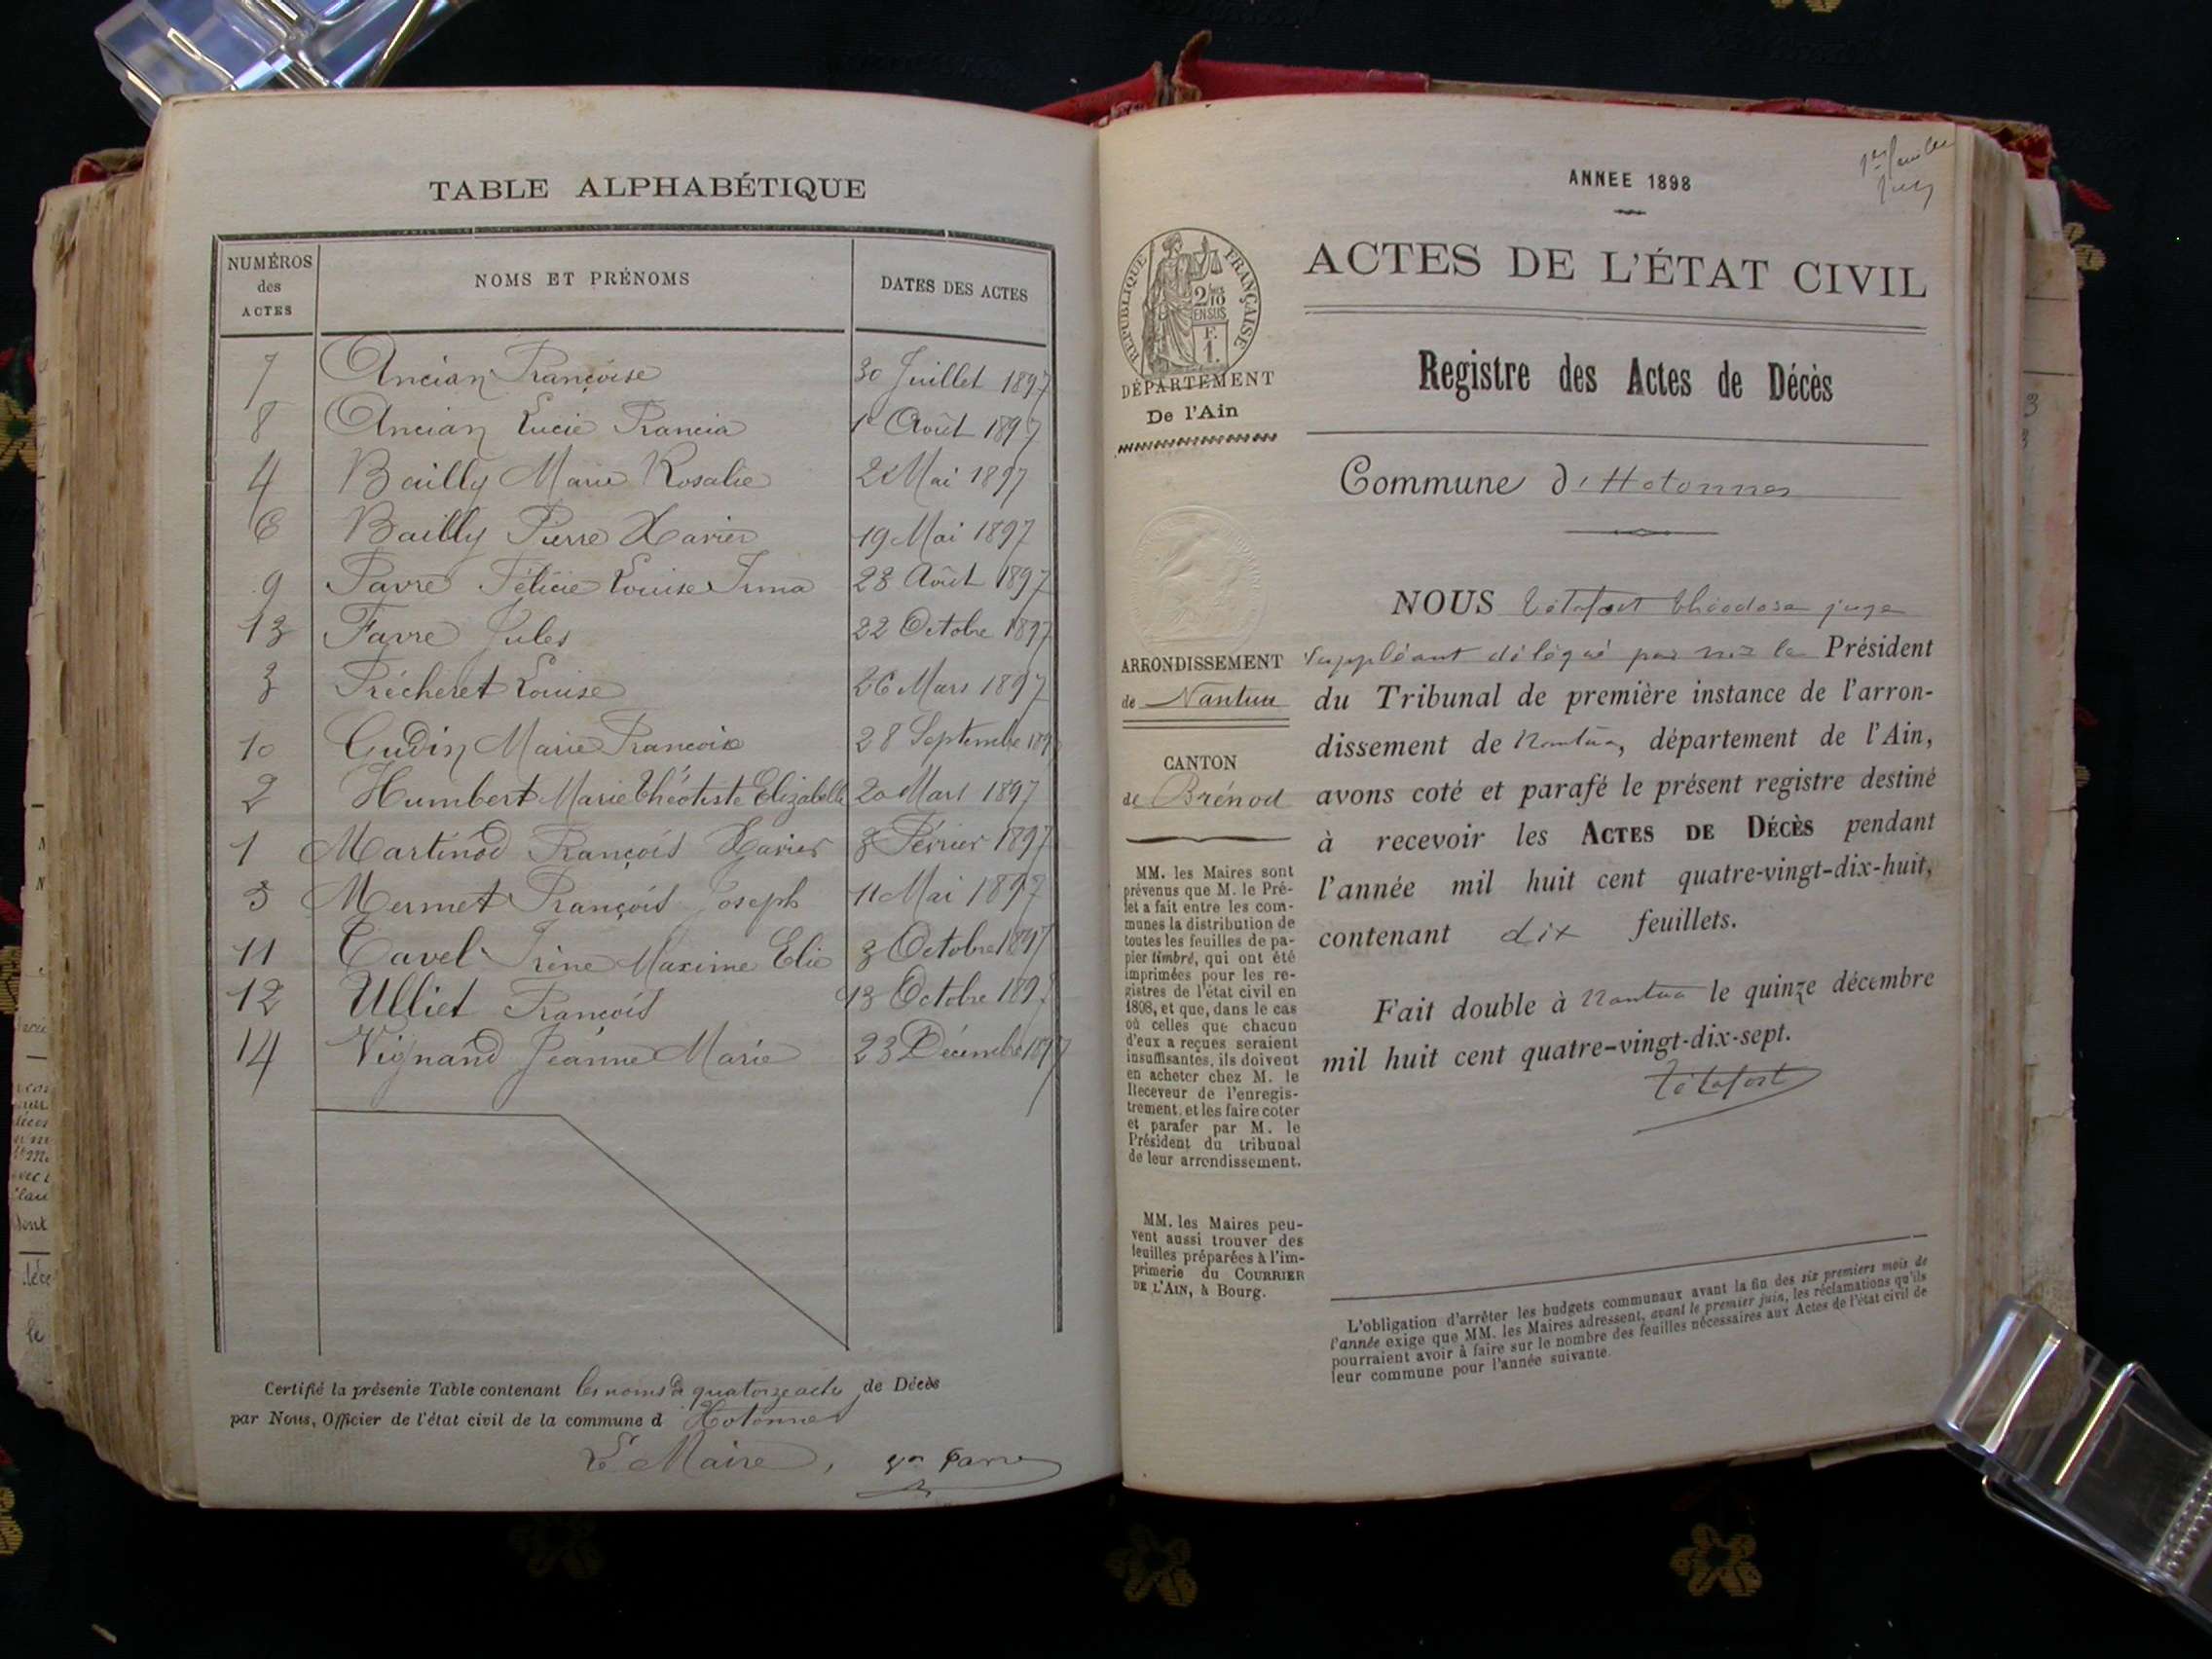 TABLE ALPHABÉTIQUE
NUMÉROS des ACTES NOMS ET PRÉNOMS DATES DES ACTES
7 Ancian Françoise 30 Juillet 1897
8 Ancian Lucie Francia 1er Août 1897
4 Bailly Marie Rosalie 2 Mai 1897
6 Bailly Pierre Xavier 19 Mai 1897
9 Favre Félicie Louise Irma 28 Août 1897
13 Favre Jules 22 Octobre 1897
3 Frécheret Louise 26 Mars 1897
10 Gudin Marie Françoise 28 Septembre 189
2 Humbert Marie Théotiste Elizabeth 20 Mars 1897
1 Martinod François Xavier 3 Février 1897
5 Mermet François Joseph 11 Mai 1897
11 Tavel Irène Maxime Elie 3 Octobre 1897
12 Ulliet François 13 Octobre 1897
14 Vignand Jeanne Marie 23 Décembre 1897
Certifié la présente Table contenant les noms de quatorze actes de Décès
par Nous, Officier de l'état civil de la commune d Hotonnes
Le Maire, Favre
1er feuillet
ANNEE 1898
ACTES DE L'ÉTAT CIVIL
REPUBLIQUE FRANÇAISE
2/10 EN SUS
F. 1.
DÉPARTEMENT
De l'Ain
Registre des Actes de Décès
Commune d'Hotonnes
ARRONDISSEMENT
de Nantua
CANTON
de Brénod
MM. les Maires sont
prévenus que M. le Pré-
fet a fait entre les com-
munes la distribution de
toutes les feuilles de pa-
pier timbré, qui ont été
imprimées pour les re-
gistres de l'état civil en
1898, et que, dans le cas
où celles que chacun
d'eux a reçues seraient
insuffisantes, ils doivent
en acheter chez M. le
Receveur de l'enregis-
trement, et les faire coter
et parafer par M. le
Président du tribunal
de leur arrondissement.
MM. les Maires peu-
vent aussi trouver des
feuilles préparées à l'im-
primerie du COURRIER
DE L'AIN, à Bourg.
NOUS Tétafort Théodose juge
Suppléant délégué par Mr le Président
du Tribunal de première instance de l'arron-
dissement de Nantua, département de l'Ain,
avons coté et parafé le présent registre destiné
à recevoir les ACTES DE DÉCÈS pendant
l'année mil huit cent quatre-vingt-dix-huit,
contenant dix feuillets.
Fait double à Nantua le quinze décembre
mil huit cent quatre-vingt-dix-sept.
Tétafort
L'obligation d'arrêter les budgets communaux avant la fin des six premiers mois de
l'année exige que MM. les Maires adressent, avant le premier juin, les réclamations qu'ils
pourraient avoir à faire sur le nombre des feuilles nécessaires aux Actes de l'état civil de
leur commune pour l'année suivante.